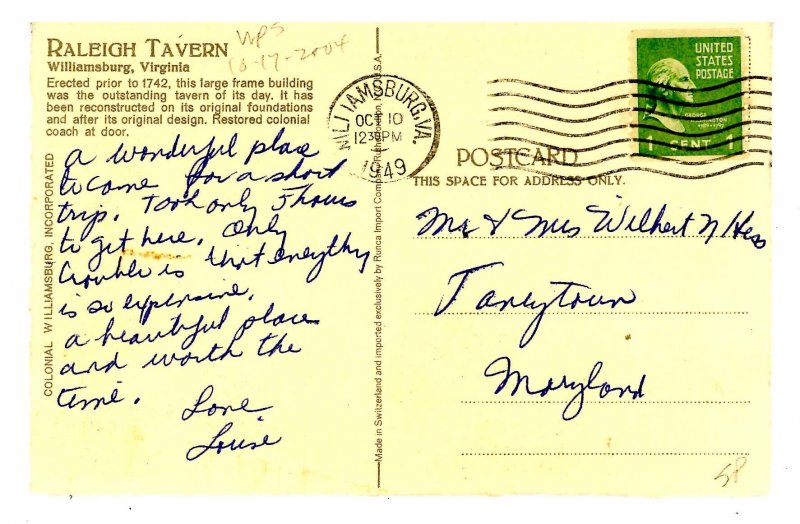 RALEIGH TAVERN
Williamsburg, Virginia
Erected prior to 1742, this large frame building
was the outstanding tavern of its day. It has
been reconstructed on its original foundations
and after its original design. Restored colonial
coach at door.
WPS
10-17-2004
a wonderful place
to come for a short
trip. Took only 5 hours
to get here. Only
trouble is that everything
is so expensive.
a beautiful place
and worth the
time.
Love
Louise
COLONIAL WILLIAMSBURG, INCORPORATED
Made in Switzerland and imported exclusively by Runca Import Company, U.S.A.
WILLIAMSBURG, VA.
OCT 10
1230PM
1949
UNITED
STATES
POSTAGE
GEORGE
WASHINGTON
1789-1797
1 CENT 1
POSTCARD
THIS SPACE FOR ADDRESS ONLY.
Mr & Mrs Wilbert N Hess
Taneytown
Maryland
SP